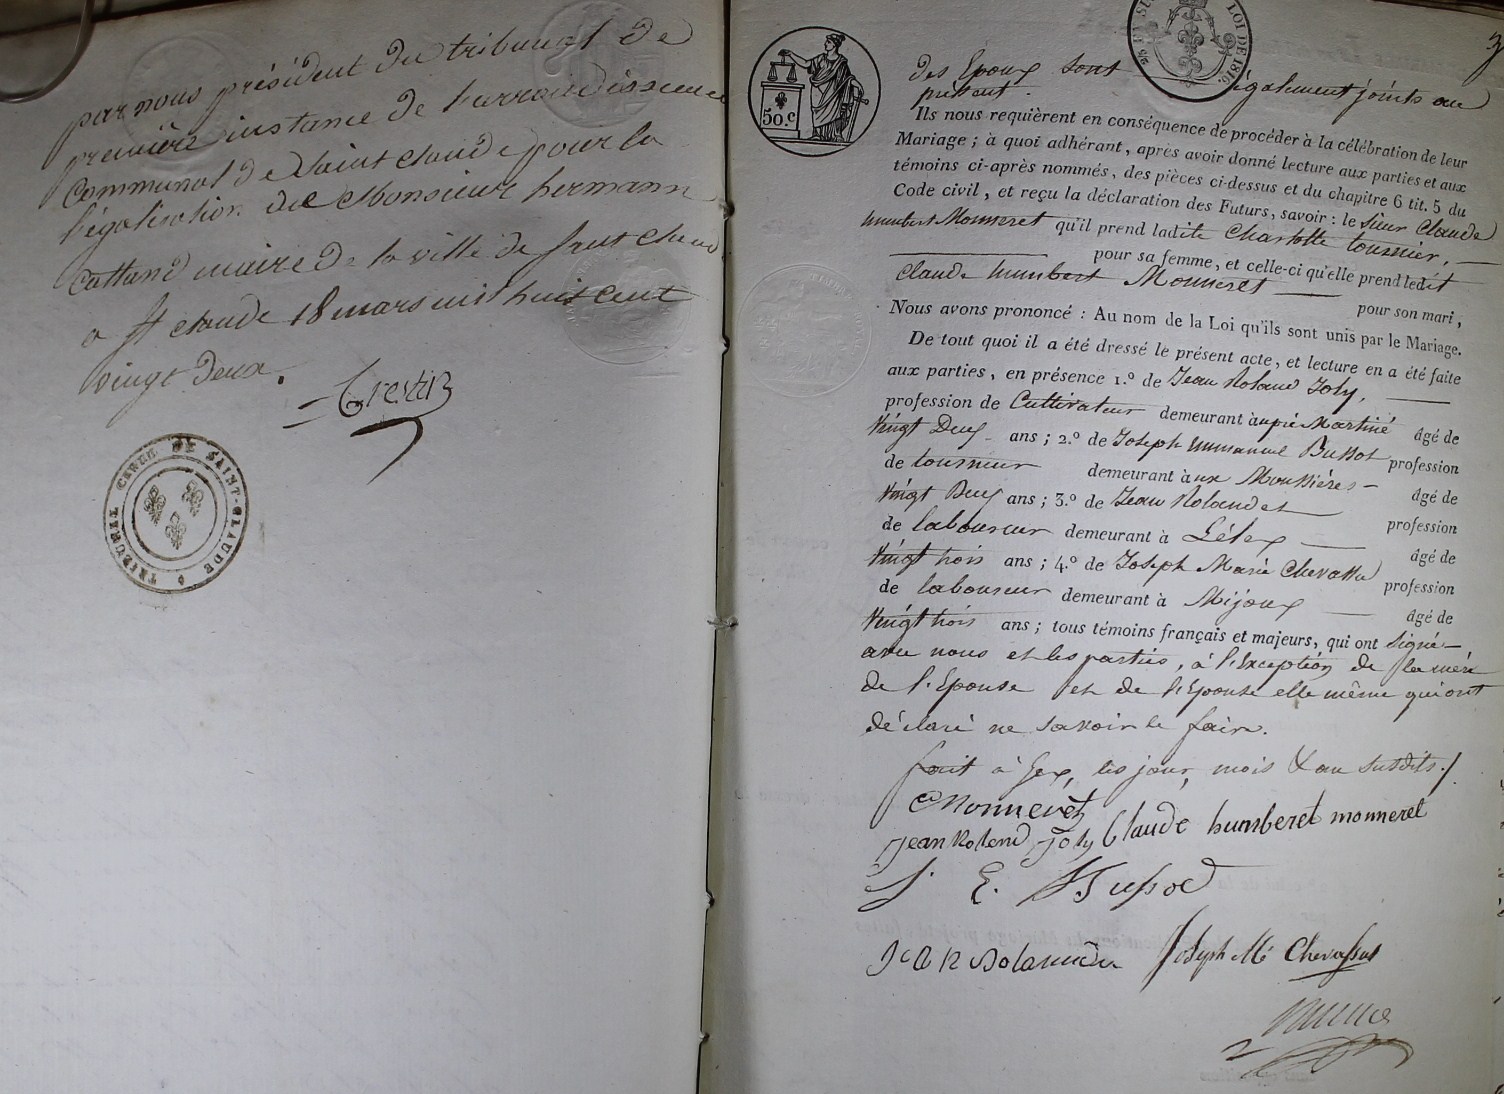 par nous président du tribunal de
première instance de l'arrondissement
Communal de Saint Claude pour la
légalisation de Monsieur hermann
Cattand maire de la ville de saint Claude
a St claude 18 mars mil huit cent
vingt deux.
TRIBUNAL CIVIL DE SAINT-CLAUDE
50.c
LOI DE 1816.
des Epoux sont également joints au
présent.
Ils nous requièrent en conséquence de procéder à la célébration de leur
Mariage ; à quoi adhérant, après avoir donné lecture aux parties et aux
témoins ci-après nommés, des pièces ci-dessus et du chapitre 6 tit. 5 du
Code civil, et reçu la déclaration des Futurs, savoir : le sieur Claude
humbert Monneret qu'il prend ladite Charlotte tournier,
pour sa femme, et celle-ci qu'elle prend ledit
Claude humbert Monneret pour son mari,
Nous avons prononcé : Au nom de la Loi qu'ils sont unis par le Mariage.
De tout quoi il a été dressé le présent acte, et lecture en a été faite
aux parties, en présence 1.° de Jean Roland Joly,
profession de Cultivateur demeurant à âgé de
Vingt Deux ans ; 2.° de Joseph Emmanuel Bussod profession
de tourneur demeurant à aux Moussières âgé de
Vingt Deux ans ; 3.° de Jean Rolandez profession
de laboureur demeurant à Lélex âgé de
Vingt trois ans ; 4.° de Joseph Marie Chevassu profession
de laboureur demeurant à Mijoux âgé de
Vingt trois ans ; tous témoins français et majeurs, qui ont signé
avec nous et les parties, à l'Exception de la mère
de l'Epouse et de l'Epouse elle même qui ont
déclaré ne savoir le faire.
fait à Gex, les jour, mois & an susdits./
Monneret
jean Rolend joly Claude humberet monneret
J. E. Bussod
Joseph Mie Chevassus